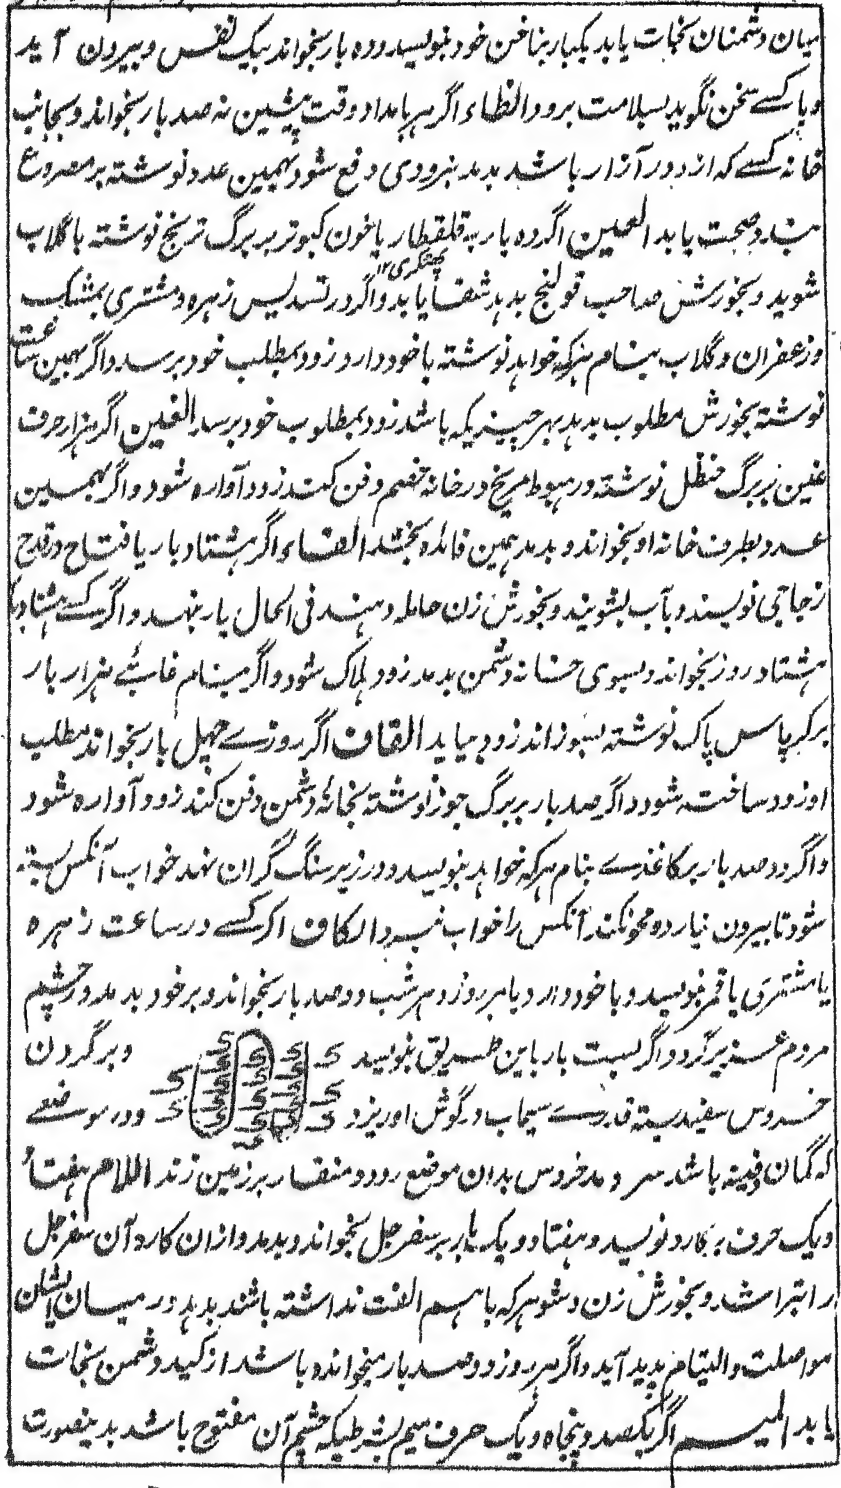 میان دشمنان نجات یابد یکبار بناخن خود بنویسد و ده بار بخواند بیک نفس و بیرون آید
و باکسے سخن نگوید بسلامت برود الظاء اگر ہر بامداد وقت پیشین نہ صد بار بخواند و بجانب
خانہ کسے کہ از دور آزار باشد بدمد بزودی دفع شود و بہمین عدد نوشتہ بر مصروع
بندد صحت یابد العین اگر دہ بار بہ قلقطار یا خون کبوتر بر برگ ترنج نوشتہ با گلاب
پھٹکری ۱۲
شوید و بخورش صاحب قولنج بدہد شفا یابد و اگر در تسدیس زہرہ و مشتری بمشک
و زعفران و گلاب بنام ہر کہ خواہد نوشتہ با خود دارد زود بمطلب خود برسد و اگر بہمین ساعت
نوشتہ بخورش مطلوب بدہد بہر چیزیکہ باشد زود بمطلوب خود برسد الغین اگر ہزار حرف
غین بر برگ حنظل نوشتہ در ہبوط مریخ در خانہ خصم دفن کند زود آوارہ شود و اگر بہمین
عدد بطرف خانہ او بخواند و بدمد ہمین فائدہ بخشد الفاء اگر ہشتاد بار یا فتاح در قدح
زجاجی نویسند و بآب بشویند و بخورش زن حاملہ دہند فی الحال بار بنہد و اگر کسے ہشتاد بار
ہشتاد روز بخواند و بسوی خانہ دشمن بدمد زود ہلاک شود و اگر بنام غائبے ہزار بار
بر کرپاس پاک نوشتہ بسوزاند زود بیاید القاف اگر روزے چہل بار بخواند مطلب
او زود ساختہ شود و اگر صد بار بر برگ جوز نوشتہ بخانہ دشمن دفن کند زود آوارہ شود
و اگر دو صد بار بر کاغذے بنام ہر کہ خواہد بنویسد و در زیر سنگ گران نہد خواب آنکس بستہ
شود تا بیرون نیارد و محو نکند آنکس را خواب نبرد الکاف اگر کسے در ساعت زہرہ
یا مشتری یا قمر بنویسد و با خود دارد یا ہر روز و ہر شب دو صد بار بخواند و بر خود بدمد در چشم
مردم عزیز گردد و اگر بست بار باین طریق بنویسد و بر گردن
خروس سفید بستہ قدرے سیماب در گوش او ریزد و در موضعے
کہ گمان دفینہ باشد سر دہد خروس بدان موضع رود و منقار بر زمین زند اللام ہفتاد
و یک حرف بر کارد نویسد و ہفتاد و یک بار بر سفرجل بخواند و بدمد و ازان کارد آن سفرجل
را بتراشد و بخورش زن و شوہر کہ باہم الفت نداشتہ باشند بدہد در میان ایشان
مواصلت و التیام پدید آید و اگر ہر روز دو صد بار میخواندہ باشد از کید دشمن نجات
یابد المیم اگر یکصد و پنجاہ و یک حرف میم بشرطیکہ چشم آن مفتوح باشد بدینصورت